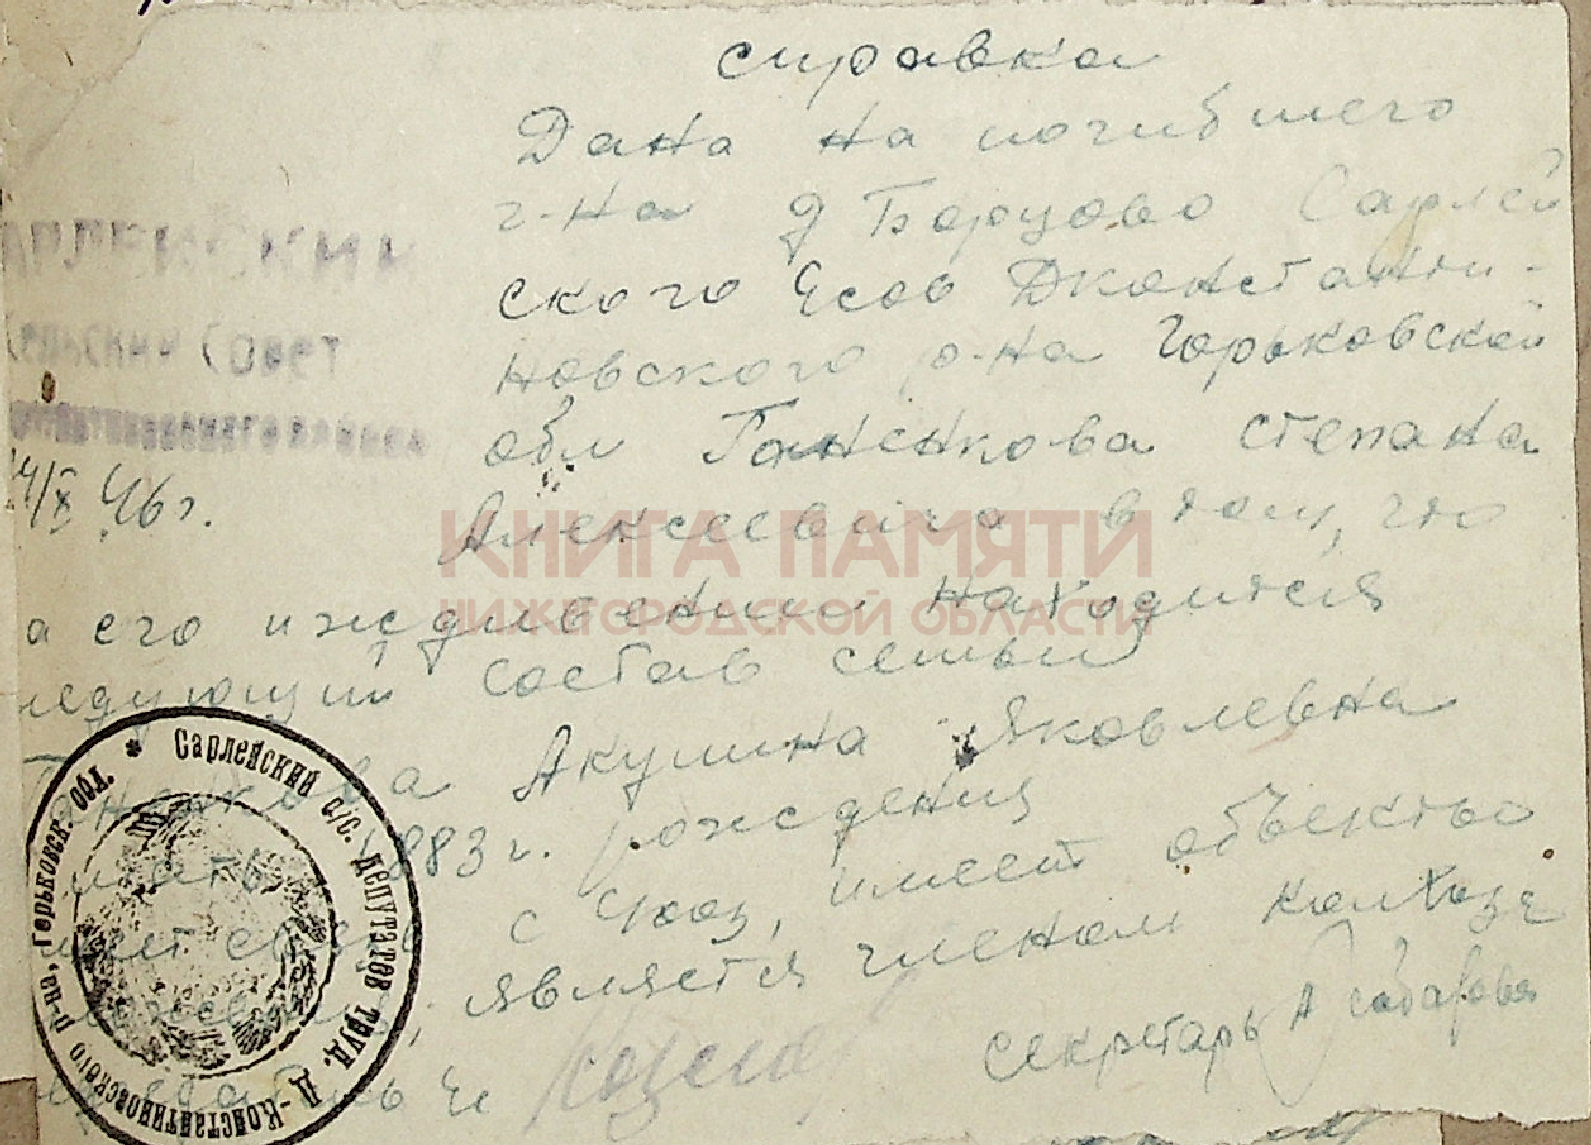 справка
Дана на погибшего
г-на д Борцово Сарлей
ского Есов Дконстанти-
новского р-на Горьковской
обл Ганенкова степана
Алексеевича в том, что
а его иждивении находится
ледующий состав семьи
Ганенкова Акулина Яковлевна
мать 1883 г. рождения
меет связь с Ч/хоз, имеет объектно
является членом колхоза
Секретарь А
САРЛЕЙСКИЙ
СЕЛЬСКИЙ СОВЕТ
Д-КОНСТАНТИНОВСКОГО РАЙОНА
14/X 46 г.
КНИГА ПАМЯТИ
НИЖЕГОРОДСКОЙ ОБЛАСТИ
* Сарлейский с/с. депутатов труд. Д-Константиновского р-на, Горьковск. обл.